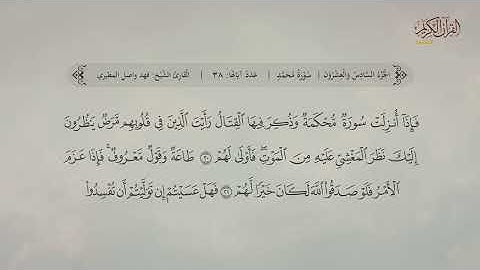 القرآن الكريم
الجزء السادس والعشرون | سورة محمد | عدد آياتها: ٣٨ | القارئ الشيخ: فهد واصل المطيري
فَإِذَا أُنزِلَتْ سُورَةٌ مُّحْكَمَةٌ وَذُكِرَ فِيهَا الْقِتَالُ رَأَيْتَ الَّذِينَ فِي قُلُوبِهِم مَّرَضٌ يَنظُرُونَ
إِلَيْكَ نَظَرَ الْمَغْشِيِّ عَلَيْهِ مِنَ الْمَوْتِ ۖ فَأَوْلَىٰ لَهُمْ ۝٢٠ طَاعَةٌ وَقَوْلٌ مَّعْرُوفٌ ۚ فَإِذَا عَزَمَ
الْأَمْرُ فَلَوْ صَدَقُوا اللَّهَ لَكَانَ خَيْرًا لَّهُمْ ۝٢١ فَهَلْ عَسَيْتُمْ إِن تَوَلَّيْتُمْ أَن تُفْسِدُوا